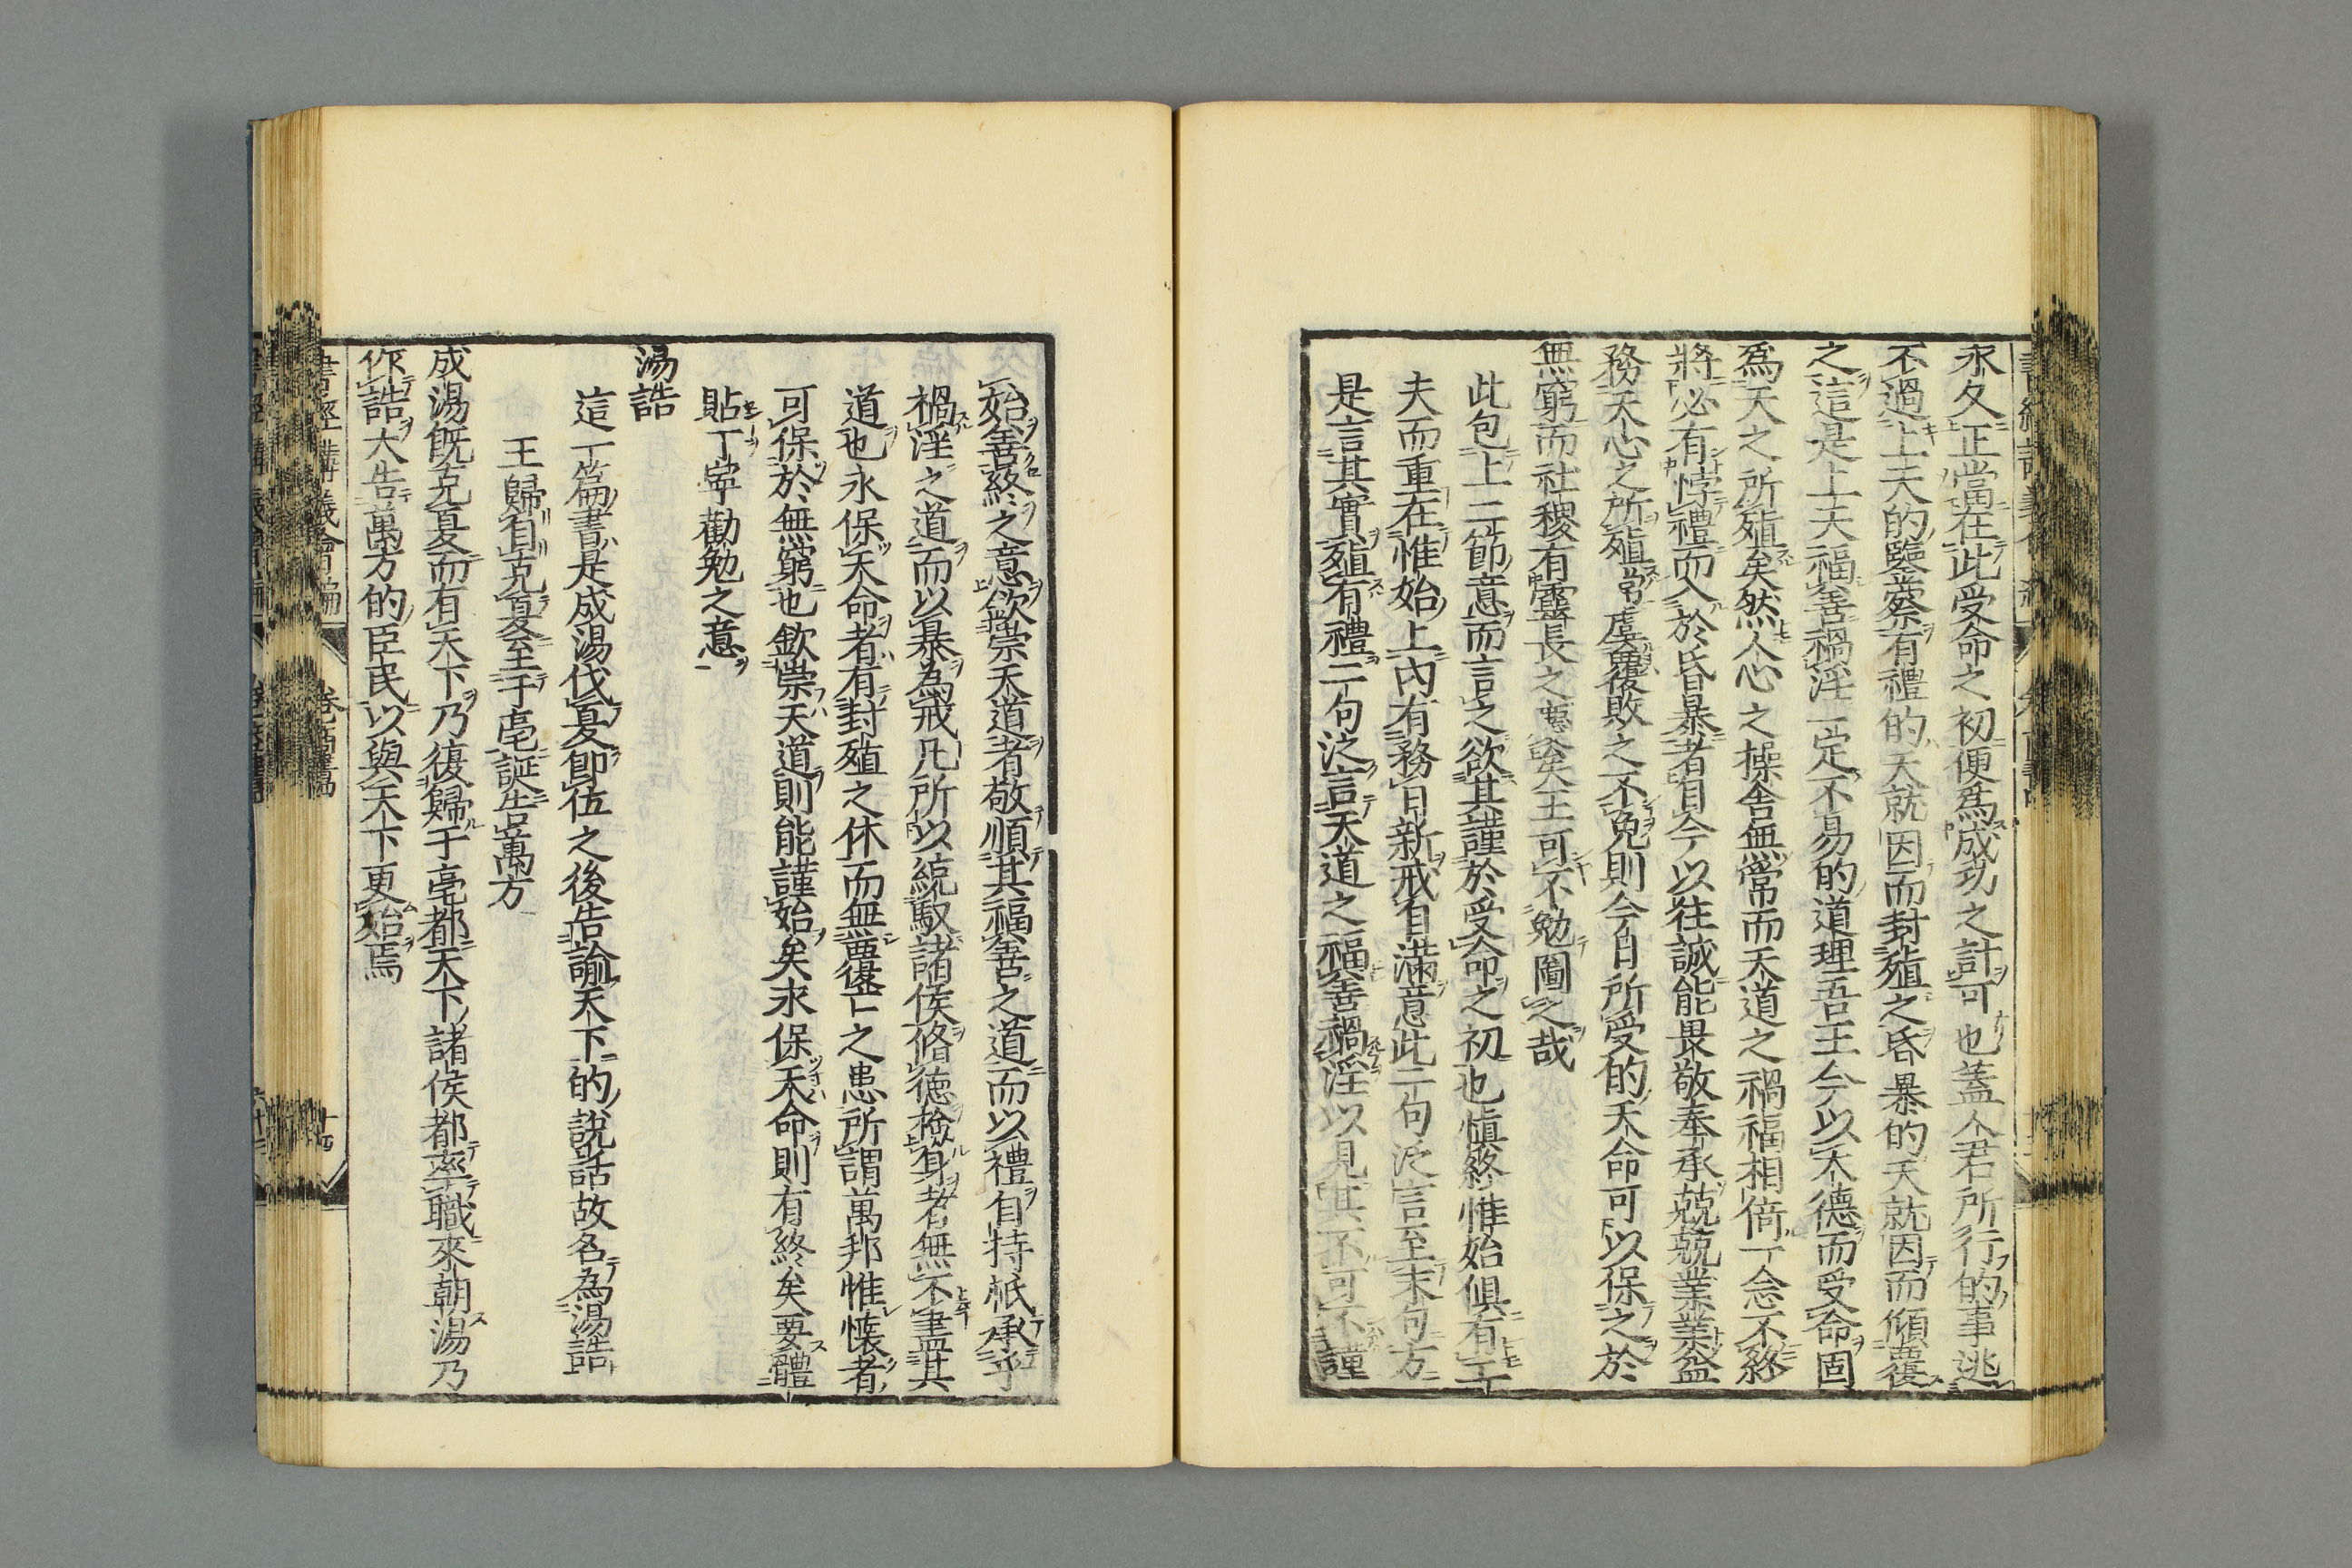 永久正當在此受命之初便爲成功之計可也蓋人君所行的事逃
不過上天的鑒察有禮的天就因而封殖之昏暴的天就因而傾覆
之這是上天福善禍淫一定不易的道理吾王今以天德而受命固
爲天之所殖矣然人心之操舍無常而天道之禍福相倚一念不終
將必有悖禮而入於昏暴者自今以往誠能畏敬奉承兢兢業業益
務天心之所殖常虞覆敗之不免則今日所受的天命可以保之於
無窮而社稷有靈長之慶矣王可不勉圖之哉
此包上二節意而言之欲其謹於受命之初也愼終惟始俱有工
夫而重在惟始上内有務日新戒自滿意此二句泛言至末句方
是言其實殖有禮二句泛言天道之福善禍淫以見其不可不謹
始善終之意欽崇天道者敬順其福善之道而以禮自持祗承乎
禍淫之道而以暴為戒凡所以統馭諸侯脩德檢身者無不盡其
道也永保天命者有封殖之休而無覆亡之患所謂萬邦惟懐者
可保於無窮也欽崇天道則能謹始矣永保天命則有終矣要體
貼丁寧勸勉之意
湯誥
這一篇書是成湯伐夏即位之後告諭天下的說話故名為湯誥
王歸自克夏至于亳誕告萬方
成湯既克夏而有天下乃復歸于亳都天下諸侯都率職來朝湯乃
作誥大告萬方的臣民以與天下更始焉